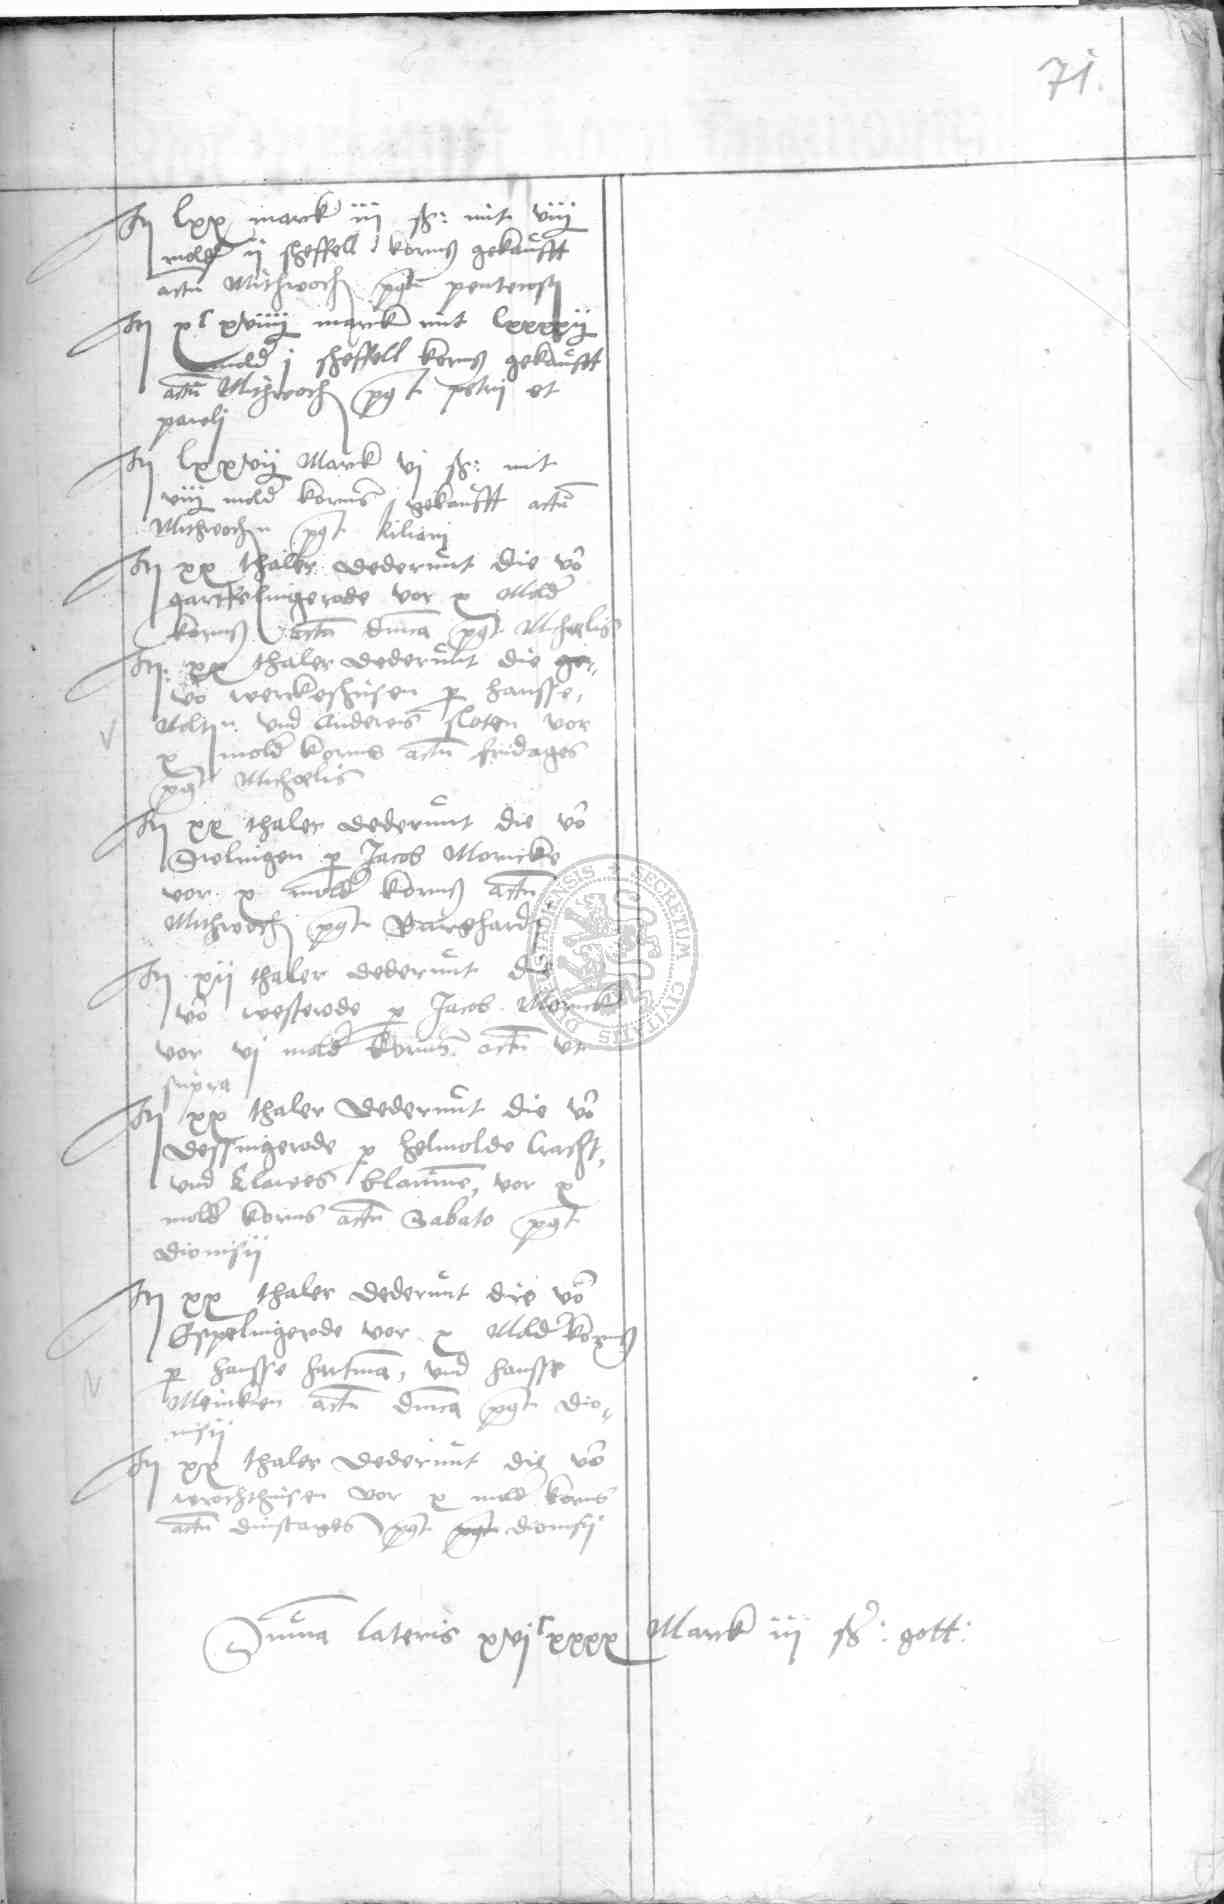 71.
It lxx marck iii ß: mit viij
mold ij scheffell kornß gekaufft
actu Mithwoch pgt pentecost
It xl xviiij marck mit lxxxxij
mold j scheffell kornß gekaufft
actu Mithwoch pgt petrij et
pawlj
It lxxvij Marck vj ß: mit
viij mold korns gekaufft actu
Mithwochn pgt kiliani
It xx thaler dederunt die vo
gartfelingerode vor x Mold
kornß actu dnica pgt Michaelis
It xx thaler dederunt die
vo werckeshusen p hansse
und anderns vor
x mold korns actu fridages
pgt Michaelis
It xx thaler dederunt die vo
Sielingen p Jacob Mornicke
vor x mold kornß actu
Mithwoch pgt Burghardi
It xij thaler dederunt die
vo westerode p Jacob Mornick
vor vj mold korns actu vt
supra
It xx thaler dederunt die vo
dessingerode p helmolde Crafft,
und Clawes blaume, vor x
mold korns actu Sabato pgt
dionisij
It xx thaler dederunt die vo
Espelingerode vor x Mold kornß
p hansse hartma, und hansse
Meinken actu dnica pgt dio-
nisij
It xx thaler dederunt die vo
werxhusen vor x mold korns
actu dinstages pgt pgt dionisij
Suma lateris xvjc xxxx Marck iij ß: gott:
SECRETUM CIVITATIS